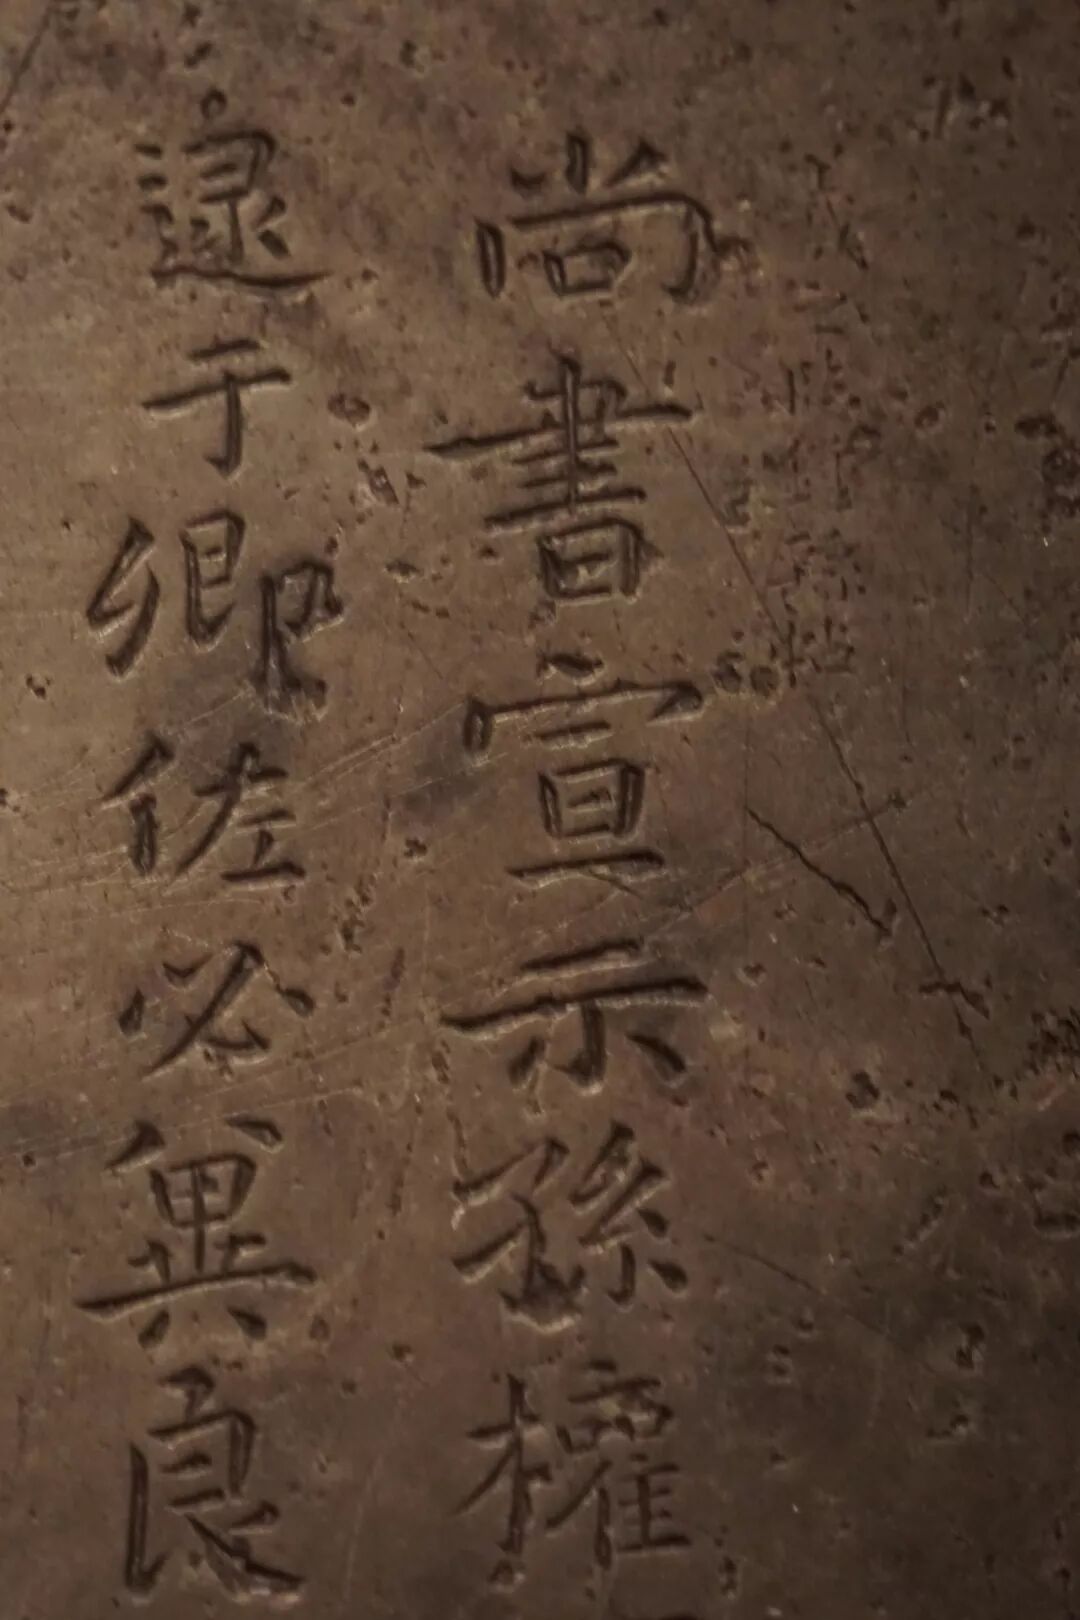 尚書宣示孫權
逮于卿佐必異良